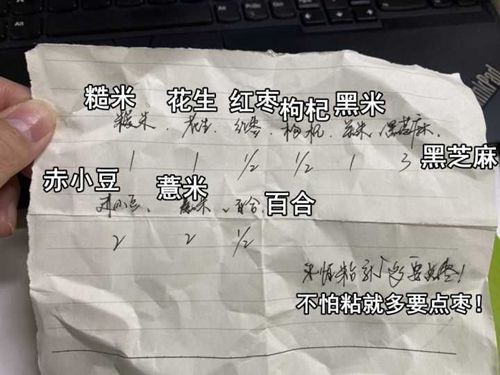 糙米 花生 红枣 枸杞 黑米
糙米、花生、红枣、枸杞、黑米、黑芝麻、
1 1 1/2 1/2 1 3 黑芝麻
赤小豆 薏米 百合
赤小豆、薏米、百合
2 2 1/2
不怕粘就多要点枣！
不怕粘就多要点枣！
ThinkPad